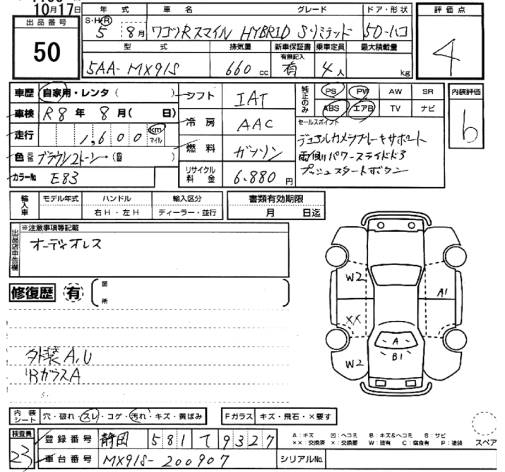 10月17日
出品番号
50
年 式
車 名
グレード
ドア・形状
S・H・R
5 8月 ワゴンRスマイル HYBRID Sリミテッド 50-ハコ
評価点
4
型 式
排気量
新車保証書 有無記入
乗車定員
最大積載量
5AA-MX91S 660cc 有 4人 kg
車歴 自家用・レンタ( )
車検 R8年 8月( 日)
走行 1,600 km マイル
色 ブラウン2トーン
カラーNo E83
シフト IAT
冷房 AAC
燃料 ガソリン
リサイクル料金 6,880円
純正のみ
PS PW AW SR
ABS エアB TV ナビ
セールスポイント
デュアルカメラブレーキサポート
両側パワースライドドア
プッシュスタートボタン
内装評価
b
輸入車
モデル年式
ハンドル
右H・左H
輸入区分
ディーラー・並行
書類有効期限
月 日迄
出品店申告欄
※注意事項等記載
オーディオレス
修復歴 有
箇所
W2
A1
XX
A
B1
W2
外装A,U
Rガラス A
内装シート
穴・破れ・スレ・コゲ・汚れ・キズ・黄ばみ
Fガラス キズ・飛石・×要す
スペア
検査員
23
登録番号 静岡 581 て 9327
車台番号 MX91S-200907
シリアルNo.
A:キズ U:ヘコミ B:キズ&ヘコミ S:サビ
××:交換済 ×:要交換 W:補修有 C:腐食有 P:塗装